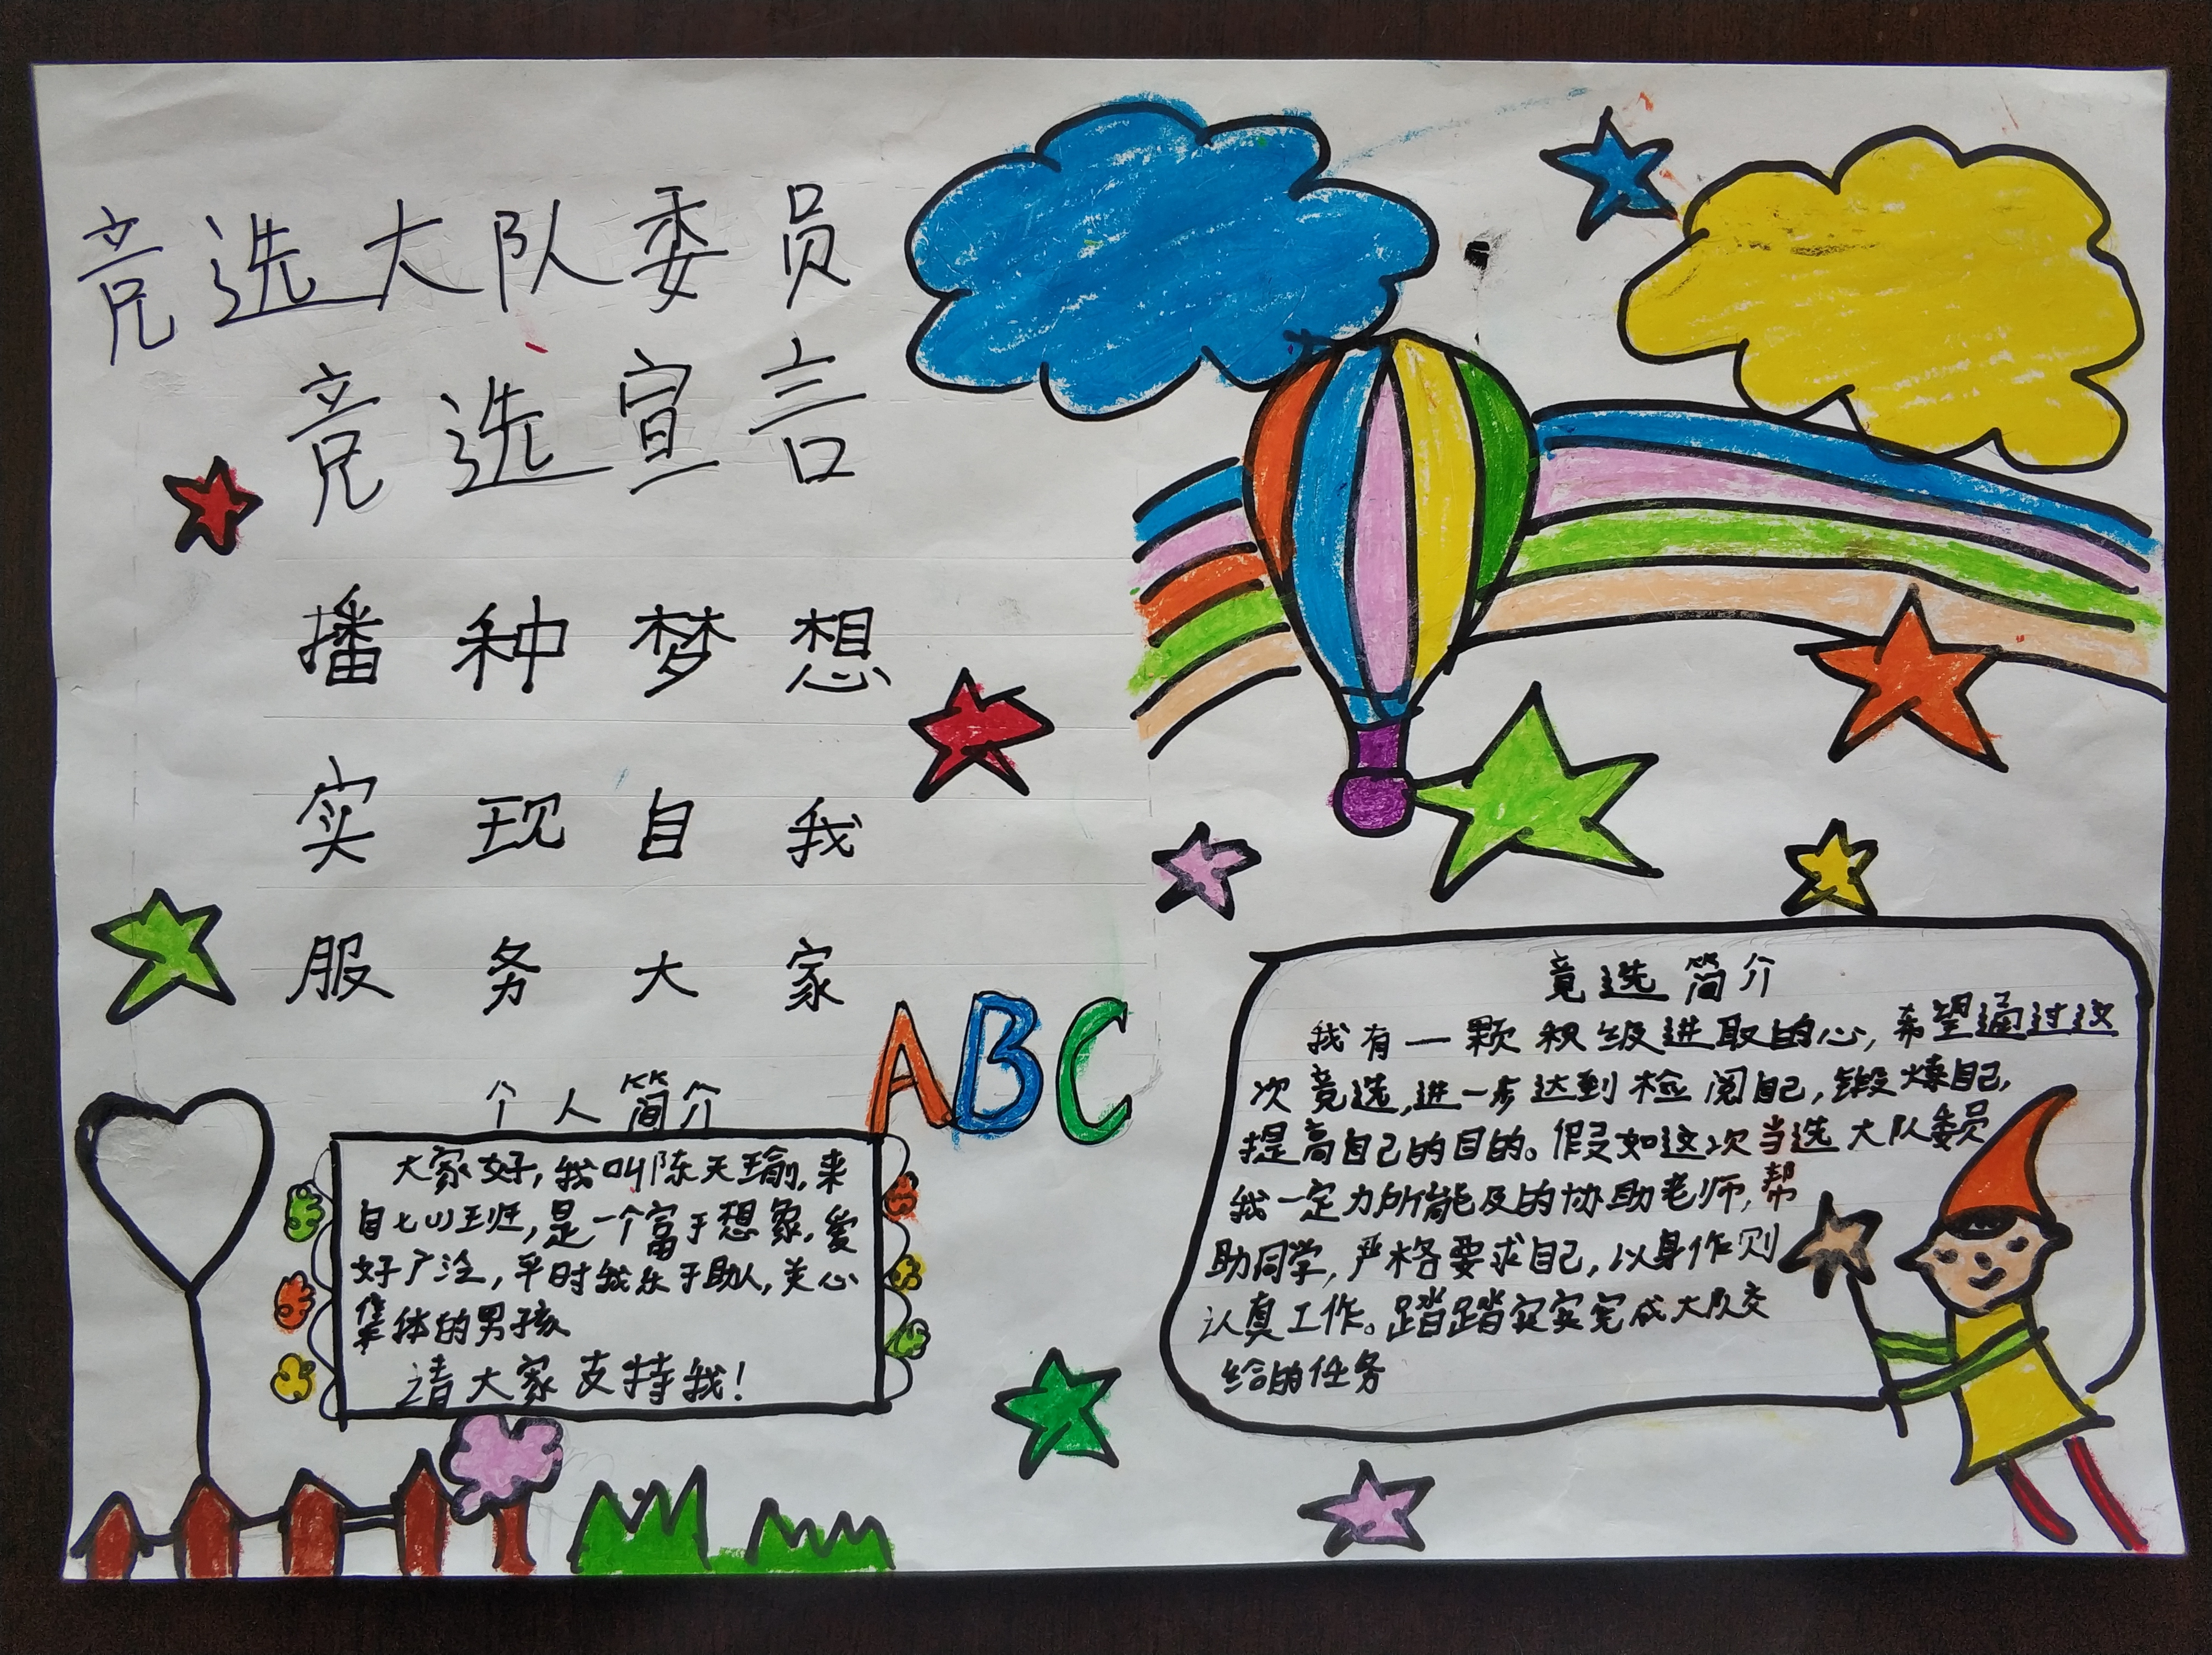 竞选大队委员
竞选宣言
播种梦想
实现自我
服务大家
ABC
个人简介
大家好,我叫陈天瑜,来
自七(1)班,是一个富于想象,爱
好广泛,平时我乐于助人,关心
集体的男孩
请大家支持我!
竟选简介
我有一颗积级进取的心,希望通过这
次竟选,进一步达到检阅自己,锻炼自己,
提高自己的目的。假如这次当选大队委员
我一定力所能及的协助老师,帮
助同学,严格要求自己,以身作则
认真工作。踏踏实实完成大队交
给的任务